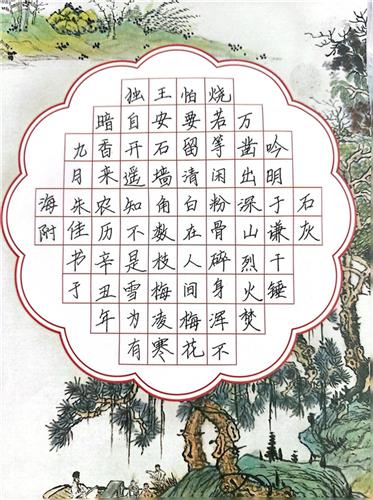 石灰
吟明于谦千锤
万凿出深山烈火焚
烧若等闲粉骨碎身浑不
怕要留清白在人间梅花
王安石墙角数枝梅凌寒
独自开遥知不是雪为有
暗香来农历辛丑年
九月朱佳书于
海附